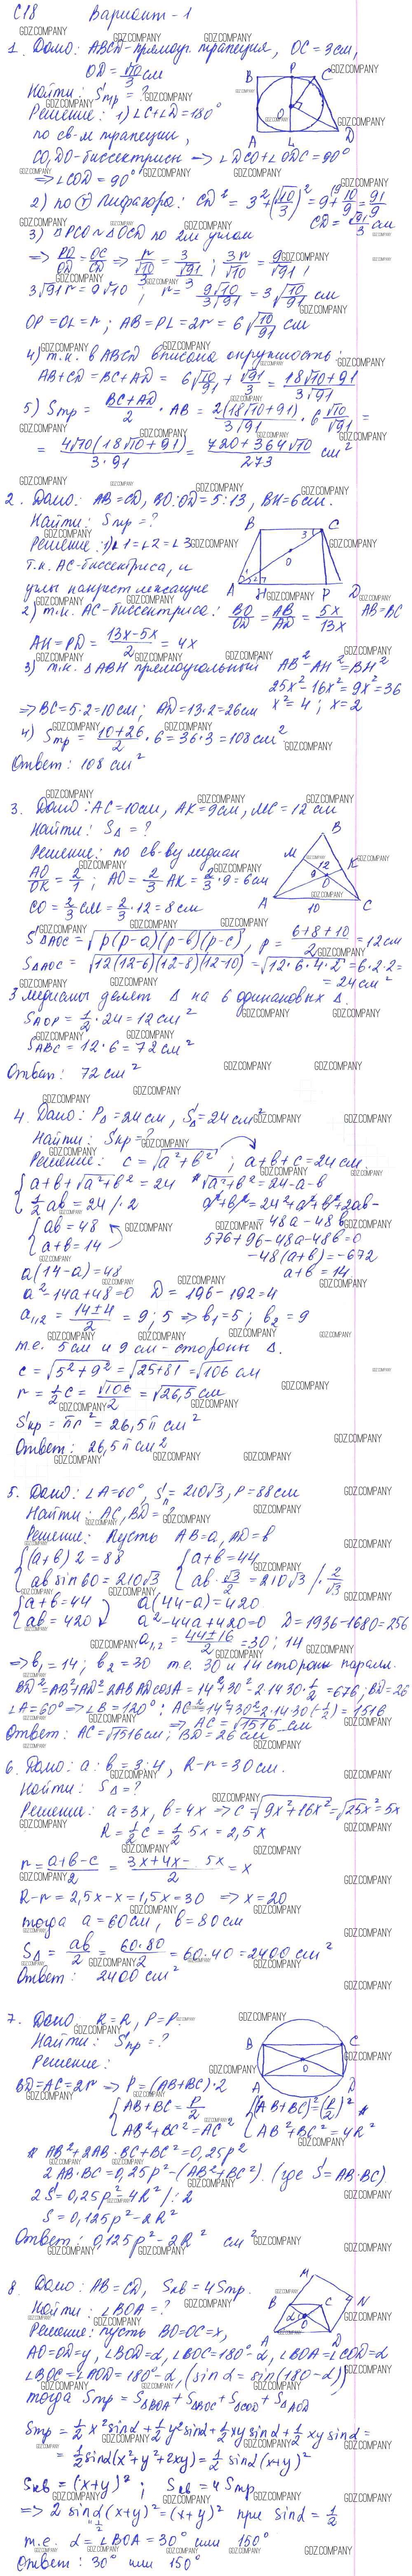 С18 Вариант-1
1. Дано: ABCD-прямоуг. трапеция, OC=3см,
OD=√10/3 см
Найти: Sтр=?
Решение: 1) ∠C+∠D=180°
по св-м трапеции,
CO, DO-биссектрисы ⇒ ∠DCO+∠ODC=90°
⇒ ∠COD=90°
2) по т. Пифагора: CD²=3²+(√10/3)²=9+10/9=91/9
CD=√91/3 см
3) △PCO∼△OCD по 2м углам
⇒ PO/OD=OC/CD ⇒
3√91r=9√10; r=9√10/3√91=3√10/91 см
OP=OL=r; AB=PL=2r=6√10/91 см
4) т.к. в ABCD вписана окружность:
AB+CD=BC+AD=6√10/91+√91/3=18√10+91/3√91
5) Sтр=BC+AD/2·AB=2(18√10+91)/3√91·6√10/√91=
=4√10(18√10+91)/3·91=720+364√10/273 см²
2. Дано: AB=CD, BO:OD=5:13, BH=6см.
Найти: Sтр=?
Решение: 1) ∠1=∠2=∠3
т.к. AC-биссектриса, и
углы накрест лежащие
2) т.к. AC-биссектриса: BO/OD=AB/AD=5x/13x AB=BC
AH=PD=13x-5x/2=4x
3) т.к. △ABH прямоугольный AB²-AH²=BH²
25x²-16x²=9x²=36
⇒ BC=5·2=10см; AD=13·2=26см x²=4; x=2
4) Sтр=10+26/2·6=36·3=108см².
Ответ: 108 см²
3. Дано: AC=10см, AK=9см, MC=12см
Найти: S△=?
Решение: по св-ву медиан
AO/OK=2/1; AO=2/3AK=2/3·9=6см
CO=2/3CM=2/3·12=8см
S△AOC=√p(p-a)(p-b)(p-c), p=6+8+10/2=12см
S△AOC=√12(12-6)(12-8)(12-10)=√12·6·4·2=6·2·2=
=24см²
3 медианы делят △ на 6 одинаковых △.
SAOP=1/2·24=12см²
SABC=12·6=72см²
Ответ: 72 см²
4. Дано: P△=24см, S△=24см²
Найти: Sкр=?
Решение: c=√a²+b²; a+b+c=24см
a+b+√a²+b²=24 * √a²+b²=24-a-b
1/2ab=24 |·2 a²+b²=24²+a²+b²+2ab-
ab=48 -48a-48b
a+b=14 576+96-48a-48b=0
-48(a+b)=-672
a(14-a)=48 a+b=14
a²-14a+48=0 D=196-192=4
a1,2=14±4/2=9; 5 ⇒ b1=5; b2=9
т.е. 5см и 9см-стороны △.
c=√5²+9²=√25+81=√106 см
r=1/2c=√106/2=√26,5 см
Sкр=πr²=26,5π см²
Ответ: 26,5π см²
5. Дано: ∠A=60°, S=210√3, P=88см
Найти: AC, BD=?
Решение: Пусть AB=a, AD=b
(a+b)2=88 a+b=44
ab sin60=210√3 ab·√3/2=210√3 |·2/√3
a+b=44 a(44-a)=420
ab=420 a²-44a+420=0 D=1936-1680=256
a1,2=44±16/2=30; 14
⇒ b1=14; b2=30 т.е. 30 и 14 стороны паралл.
BD²=AB²+AD²-2AB·AD·cosA=14²+30²-2·14·30·1/2=676; BD=26
∠A=60° ⇒ ∠B=120°: AC²=14²+30²-2·14·30·(-1/2)=1516
⇒ AC=√1516 см
Ответ: AC=√1516см; BD=26см
6. Дано: a:b=3:4, R-r=30см.
Найти: S△=?
Решение: a=3x, b=4x ⇒ C=√9x²+16x²=√25x²=5x
R=1/2c=1/2·5x=2,5x
r=a+b-c/2=3x+4x-5x/2=x
R-r=2,5x-x=1,5x=30 ⇒ x=20
тогда a=60см, b=80см
S△=ab/2=60·80/2=60·40=2400см²
Ответ: 2400 см²
7. Дано: R=R, P=P.
Найти: Sпр=?
Решение:
BD=AC=2r ⇒ P=(AB+BC)·2
AB+BC=P/2 (AB+BC)²=(P/2)² *
AB²+BC²=AC² AB²+BC²=4R²
* AB²+2AB·BC+BC²=0,25p²
2AB·BC=0,25p²-(AB²+BC²). (где S=AB·BC)
2S=0,25p²-4R² |:2
S=0,125p²-2R²
Ответ: 0,125p²-2R² см²
8. Дано: AB=CD, Sкв=4Sтр.
Найти: ∠BOA=?
Решение: пусть BO=OC=x,
AO=OD=y, ∠BOA=α, ∠BOC=180°-α, ∠BOA=∠COD=α
∠BOC=∠AOD=180°-α, (sinα=sin(180-α))
тогда Sтр=S△BOA+S△BOC+S△COD+S△AOD
Sтр=1/2x²sinα+1/2y²sinα+1/2xy sinα+1/2xy sinα=
=1/2sinα(x²+y²+2xy)=1/2sinα(x+y)²
Sкв=(x+y)²; Sкв=4Sтр
⇒ 2 sinα(x+y)²=(x+y)² при sinα=1/2
т.е. α=∠BOA=30° или 150°
Ответ: 30° или 150°